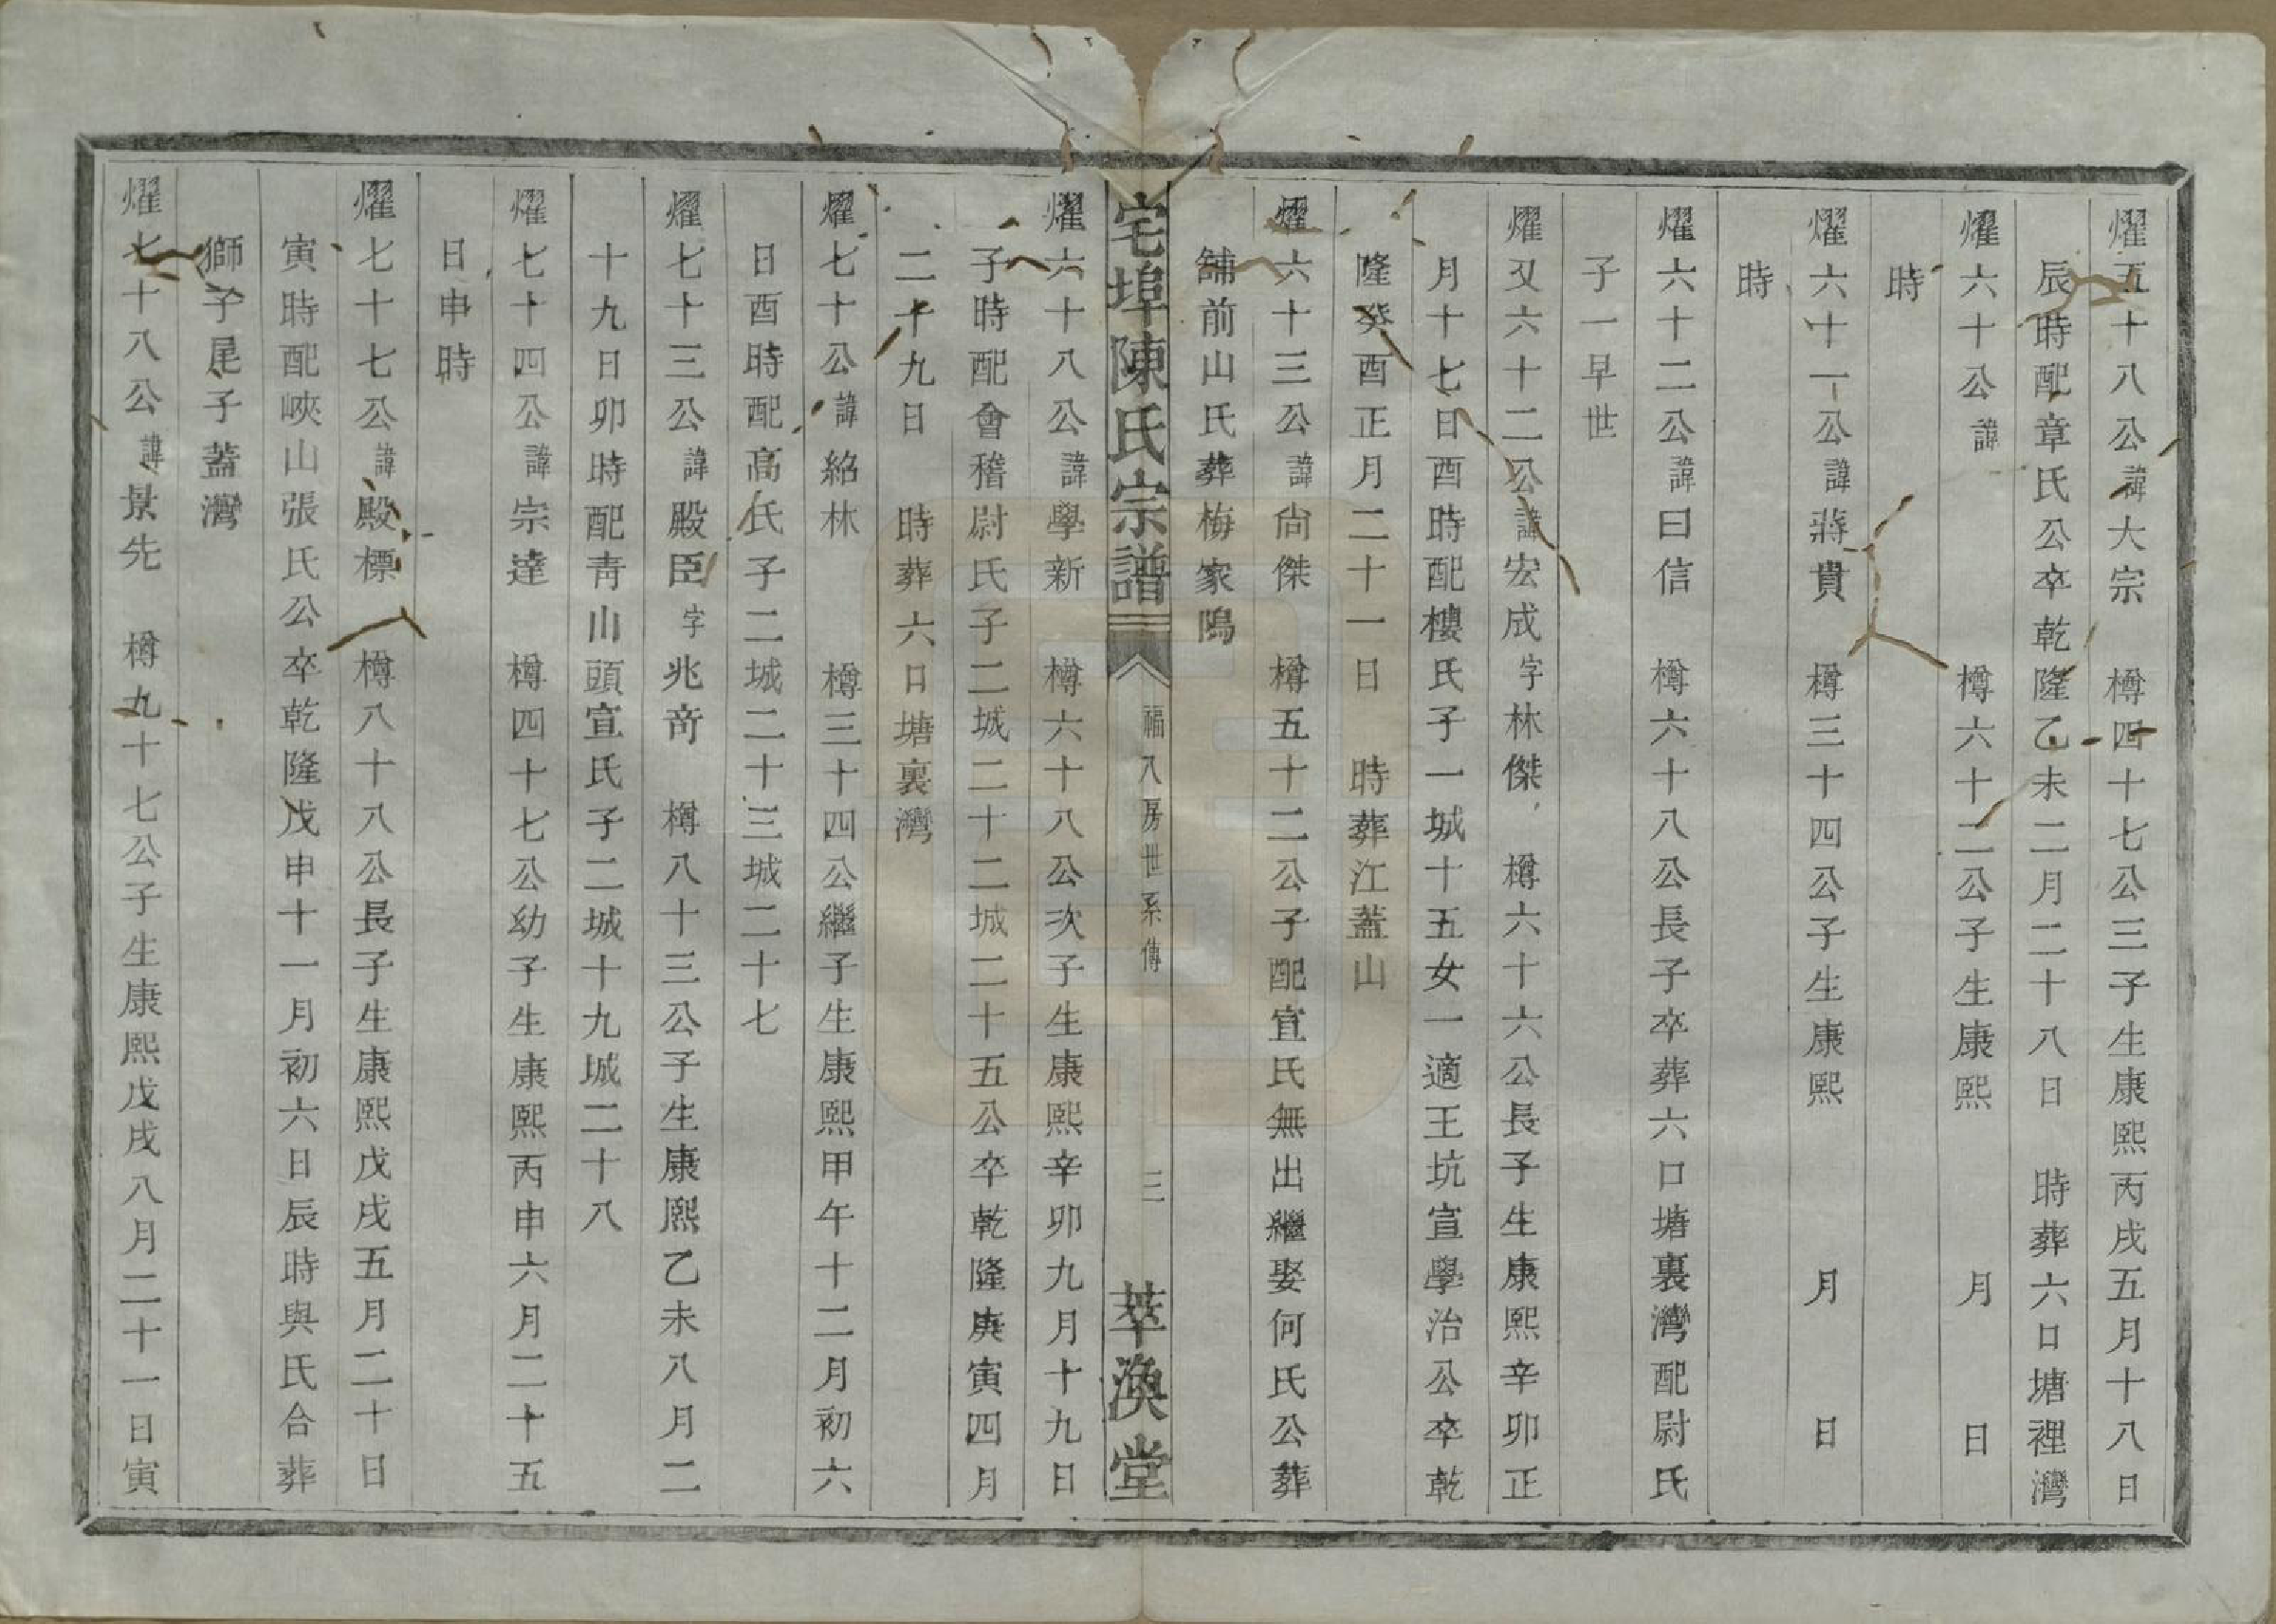 燿五十八公諱大宗　樽四十七公三子生康熙丙戌五月十八日
辰時配章氏公卒乾隆乙未二月二十八日　時葬六口塘裡灣
燿六十公諱　樽六十二公子生康熙　月　日
時
燿六十一公諱蔣貴　樽三十四公子生康熙　月　日
時
燿六十二公諱曰信　樽六十八公長子卒葬六口塘裏灣配尉氏
子一早世
燿又六十二公諱宏成字林傑　樽六十六公長子生康熙辛卯正
月十七日酉時配樓氏子一城十五女一適王坑宣學治公卒乾
隆癸酉正月二十一日　時葬江蓋山
燿六十三公諱尙傑　樽五十二公子配宣氏無出繼娶何氏公葬
舖前山氏葬梅家隝
宅埠陳氏宗譜
福八房世系傳
三
萃渙堂
燿六十八公諱學新　樽六十八公次子生康熙辛卯九月十九日
子時配會稽尉氏子二城二十二城二十五公卒乾隆庚寅四月
二十九日　時葬六口塘裏灣
燿七十公諱紹林　樽三十四公繼子生康熙甲午十二月初六
日酉時配高氏子二城二十三城二十七
燿七十三公諱殿臣字兆奇　樽八十三公子生康熙乙未八月二
十九日卯時配靑山頭宣氏子二城十九城二十八
燿七十四公諱宗達　樽四十七公幼子生康熙丙申六月二十五
日申時
燿七十七公諱殿標　樽八十八公長子生康熙戊戌五月二十日
寅時配峽山張氏公卒乾隆戊申十一月初六日辰時與氏合葬
獅子尾子蓋灣
燿七十八公諱景先　樽九十七公子生康熙戊戌八月二十一日寅